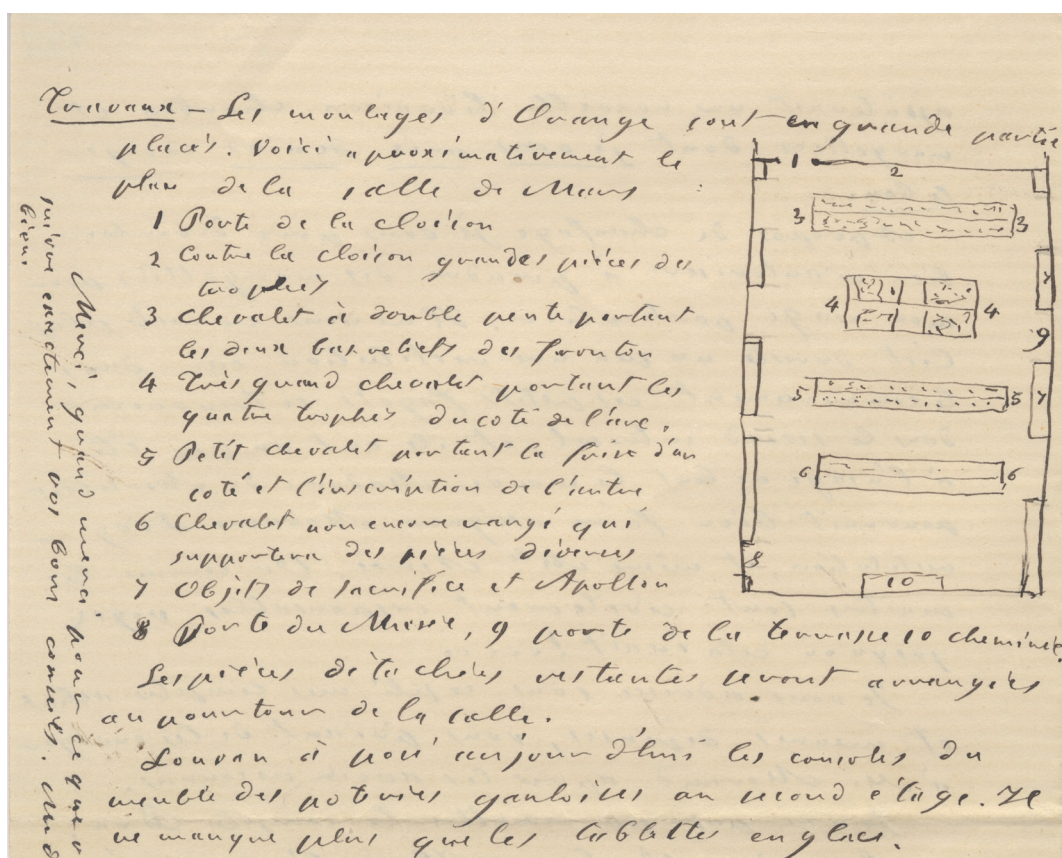 Travaux – Les moulages d'Orange sont en grande partie
placés. Voici aproximativement le
plan de la salle de Mars
1 Porte de la cloison
2 Contre la cloison grandes pièces des
trophés
3 Chevalet à double pente portant
les deux bas reliefs des fronton
4 Très grand chevalet portant les
quatre trophés du coté de l'arc.
5 Petit chevalet portant la frise d'un
coté et l'inscription de l'autre
6 Chevalet non encore rangé qui
supportera des pièces diverses
7 Objets de sacrifice et Apollon
8 Porte du Musée, 9 porte de la terrasse 10 cheminée.
Les pièces détachées restantes seront arrangées
au pourtour de la salle.
Louvan à posé aujourd'hui les consoles du
meuble des poteries gauloises au second étage. Il
ne manque plus que les tablettes en glace.
1
2
3 3
4 4
5 5
6 6
7
7
8
9
10
Merci, grand merci pour ce que
suivre exactement vos bons conseils.
bien.